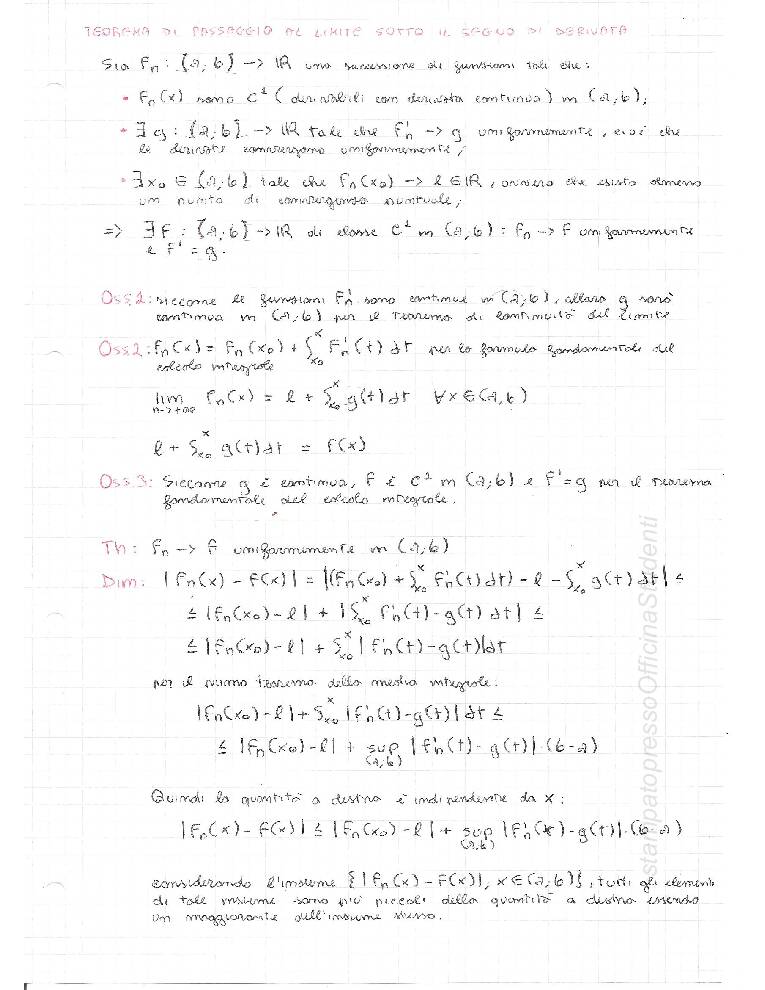 TEOREMA DI PASSAGGIO AL LIMITE SOTTO IL SEGNO DI DERIVATA
Sia Fn : [a, b] -> ℝ una successione di funzioni tali che:
• Fn(x) sono C¹ (derivabili con derivata continua) in (a, b);
• ∃ g : [a, b] -> ℝ tale che F'n -> g uniformemente, cioè che
le derivate convergono uniformemente;
• ∃ x₀ ∈ [a, b] tale che Fn(x₀) -> l ∈ ℝ, ovvero che esista almeno
un punto di convergenza puntuale;
=> ∃ F : [a, b] -> ℝ di classe C¹ in (a, b) : Fn -> F uniformemente
e F' = g.
Oss.1: siccome le funzioni F'n sono continue in (a, b), allora g sarà
continua in (a, b) per il Teorema di Continuità del Limite
Oss.2: Fn(x) = Fn(x₀) + ∫ₓ₀ˣ F'n(t) dt per la formula fondamentale del
calcolo integrale
lim n->+∞ Fn(x) = l + ∫ₓ₀ˣ g(t) dt ∀x ∈ (a, b)
l + ∫ₓ₀ˣ g(t) dt = F(x)
Oss.3: Siccome g è continua, F è C¹ in (a, b) e F' = g per il Teorema
fondamentale del calcolo integrale.
Th: Fn -> F uniformemente in (a, b)
Dim: |Fn(x) - F(x)| = |(Fn(x₀) + ∫ₓ₀ˣ F'n(t) dt) - l - ∫ₓ₀ˣ g(t) dt| ≤
≤ |Fn(x₀) - l| + |∫ₓ₀ˣ F'n(t) - g(t) dt| ≤
≤ |Fn(x₀) - l| + ∫ₓ₀ˣ |F'n(t) - g(t)| dt
per il primo teorema della media integrale:
|Fn(x₀) - l| + ∫ₓ₀ˣ |F'n(t) - g(t)| dt ≤
≤ |Fn(x₀) - l| + sup (a,b) |F'n(t) - g(t)| · (b - a)
Quindi la quantità a destra è indipendente da x:
|Fn(x) - F(x)| ≤ |Fn(x₀) - l| + sup (a,b) |F'n(t) - g(t)| · (b - a)
considerando l'insieme {|Fn(x) - F(x)|, x ∈ (a, b)}, tutti gli elementi
di tale insieme sono più piccoli della quantità a destra essendo
un maggiorante dell'insieme stesso.
stampatopressoOfficinaStudenti